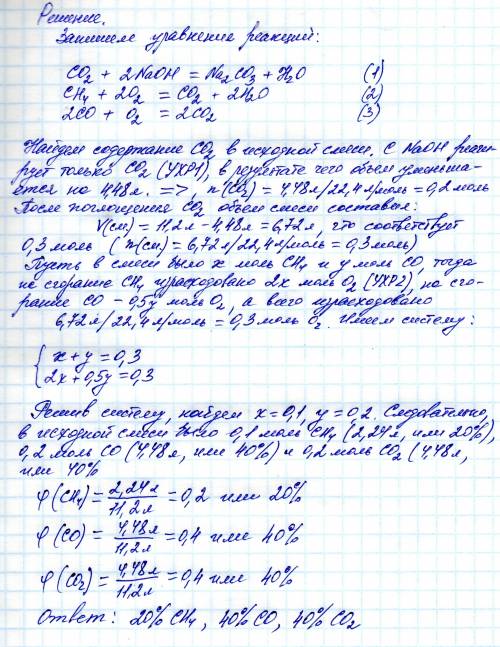 Решение.
Запишем уравнение реакций:
CO₂ + 2NaOH = Na₂CO₃ + H₂O (1)
CH₄ + 2O₂ = CO₂ + 2H₂O (2)
2CO + O₂ = 2CO₂ (3)
Найдем содержание CO₂ в исходной смеси. С NaOH реаги-
рует только CO₂ (УХР1), в результате чего объем уменьша-
ется на 4,48л. => n(CO₂) = 4,48л/22,4л/моль = 0,2 моль
После поглощения CO₂ объем смеси составил:
V(см) = 11,2л - 4,48л = 6,72л, что соответствует
0,3 моль (n(см) = 6,72л/22,4л/моль = 0,3моль)
Пусть в смеси было x моль CH₄ и y моль CO, тогда
на сгорание CH₄ израсходовано 2x моль O₂ (УХР2), на сго-
рание CO - 0,5y моль O₂, а всего израсходовано
6,72л/22,4л/моль = 0,3 моль O₂. Имеем систему:
{ x + y = 0,3
2x + 0,5y = 0,3
Решив систему, найдем x = 0,1, y = 0,2. Следовательно,
в исходной смеси было 0,1 моль CH₄ (2,24л, или 20%),
0,2 моль CO (4,48л, или 40%) и 0,2 моль CO₂ (4,48л,
или 40%
φ(CH₄) = 2,24л/11,2л = 0,2 или 20%
φ(CO) = 4,48л/11,2л = 0,4 или 40%
φ(CO₂) = 4,48л/11,2л = 0,4 или 40%
Ответ: 20% CH₄, 40% CO, 40% CO₂